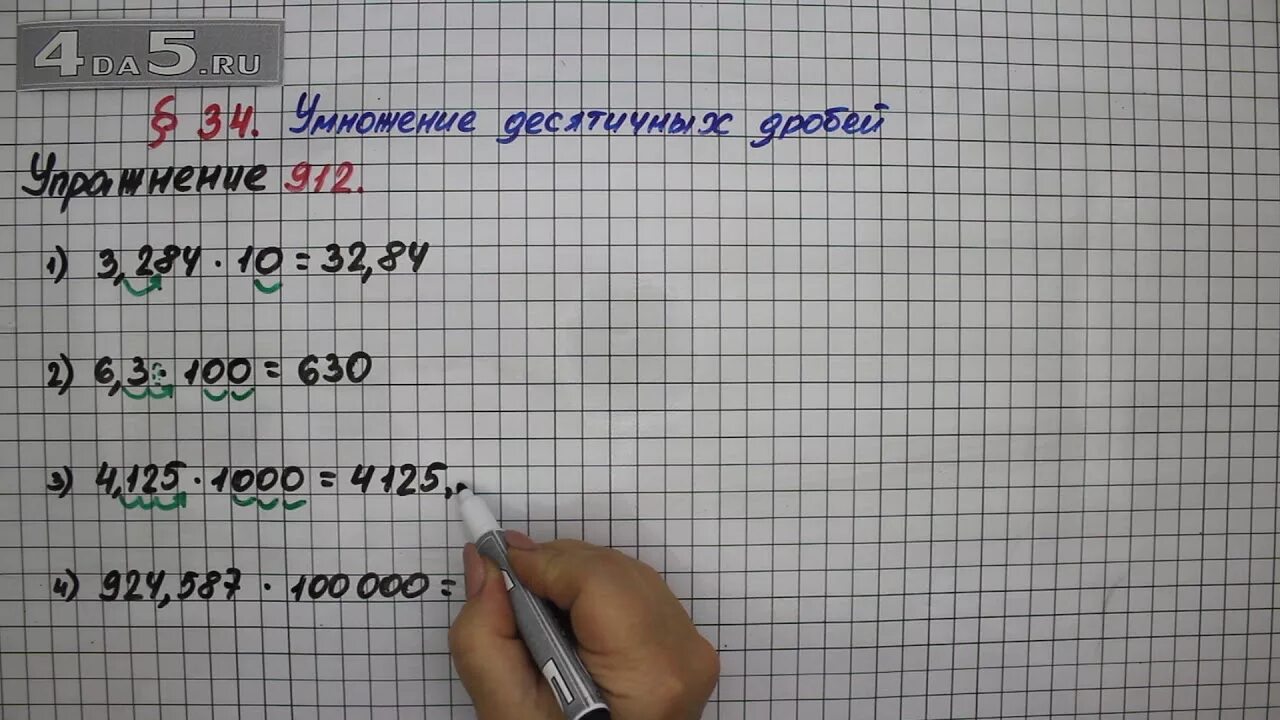 4DA5.RU
§ 34. Умножение десятичных дробей
Упражнение 912.
1) 3,284 · 10 = 32,84
2) 6,3 · 100 = 630
3) 4,125 · 1000 = 4125,
4) 924,587 · 100 000 =